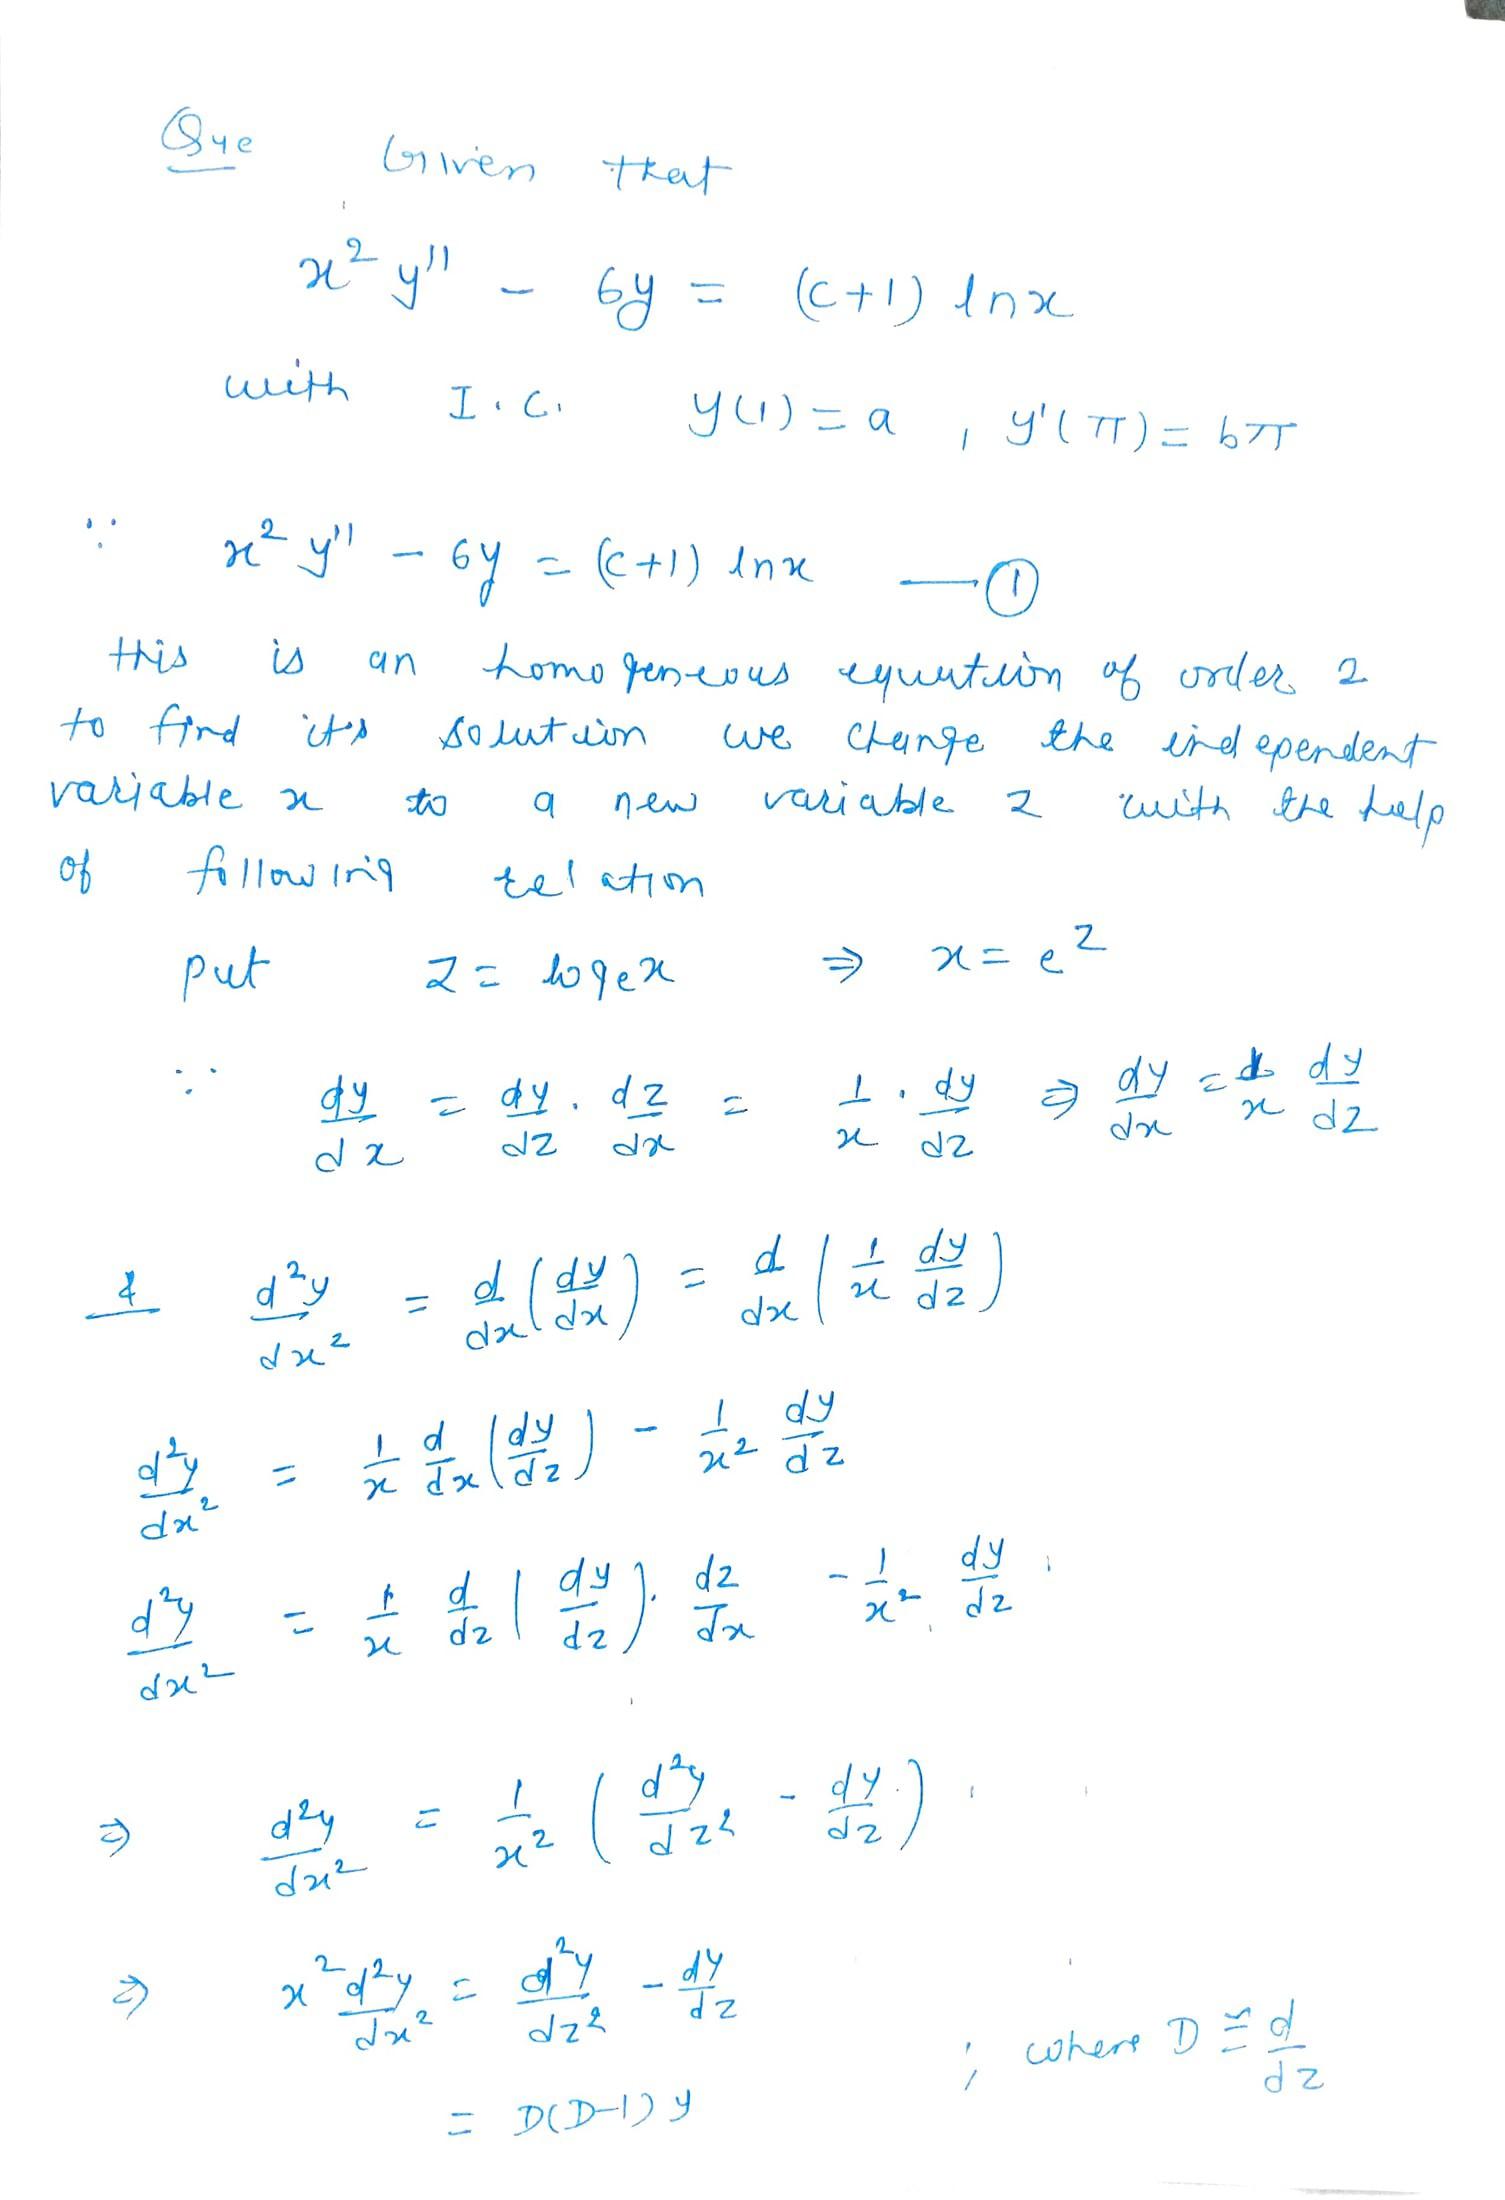 Que Given that
x² y'' - 6y = (c+1) lnx
with I.C. y(1) = a , y'(π) = bπ
∵ x² y'' - 6y = (c+1) lnx —①
this is an homogeneous equation of order 2
to find its solution we change the independent
variable x to a new variable z with the help
of following relation
put z = logex ⇒ x = e^z
∵ dy/dx = dy/dz . dz/dx = 1/x . dy/dz ⇒ dy/dx = 1/x dy/dz
& d²y/dx² = d/dx (dy/dx) = d/dx (1/x dy/dz)
d²y/dx² = 1/x d/dx (dy/dz) - 1/x² dy/dz
d²y/dx² = 1/x d/dz (dy/dz) . dz/dx - 1/x² dy/dz
⇒ d²y/dx² = 1/x² (d²y/dz² - dy/dz)
⇒ x² d²y/dx² = d²y/dz² - dy/dz
; where D ≅ d/dz
= D(D-1) y